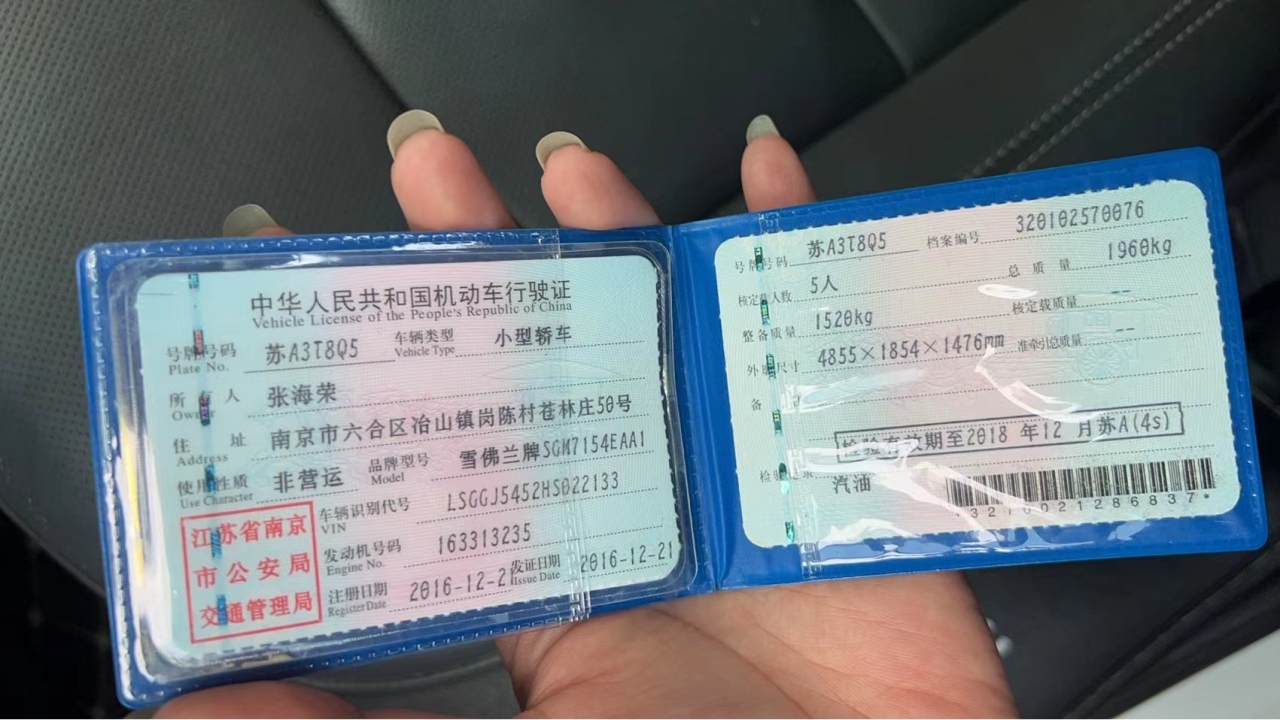 中华人民共和国机动车行驶证
Vehicle License of the People's Republic of China
号牌号码 苏A3T8Q5 车辆类型 小型轿车
Plate No. Vehicle Type
所有人 张海荣
Owner
住址 南京市六合区冶山镇岗陈村苍林庄50号
Address
使用性质 非营运 品牌型号 雪佛兰牌SGM7154EAA1
Use Character Model
车辆识别代号 LSGGJ5452HS022133
VIN
发动机号码 163313235
Engine No.
注册日期 2016-12-2 发证日期 2016-12-21
Register Date Issue Date
江苏省南京
市公安局
交通管理局
号牌号码 苏A3T8Q5 档案编号 320102570076
核定载人数 5人 总质量 1960kg
整备质量 1520kg 核定载质量 --
外廓尺寸 4855×1854×1476mm 准牵引总质量 --
备
检验有效期至2018 年12 月苏A(4s)
检验 录 汽油